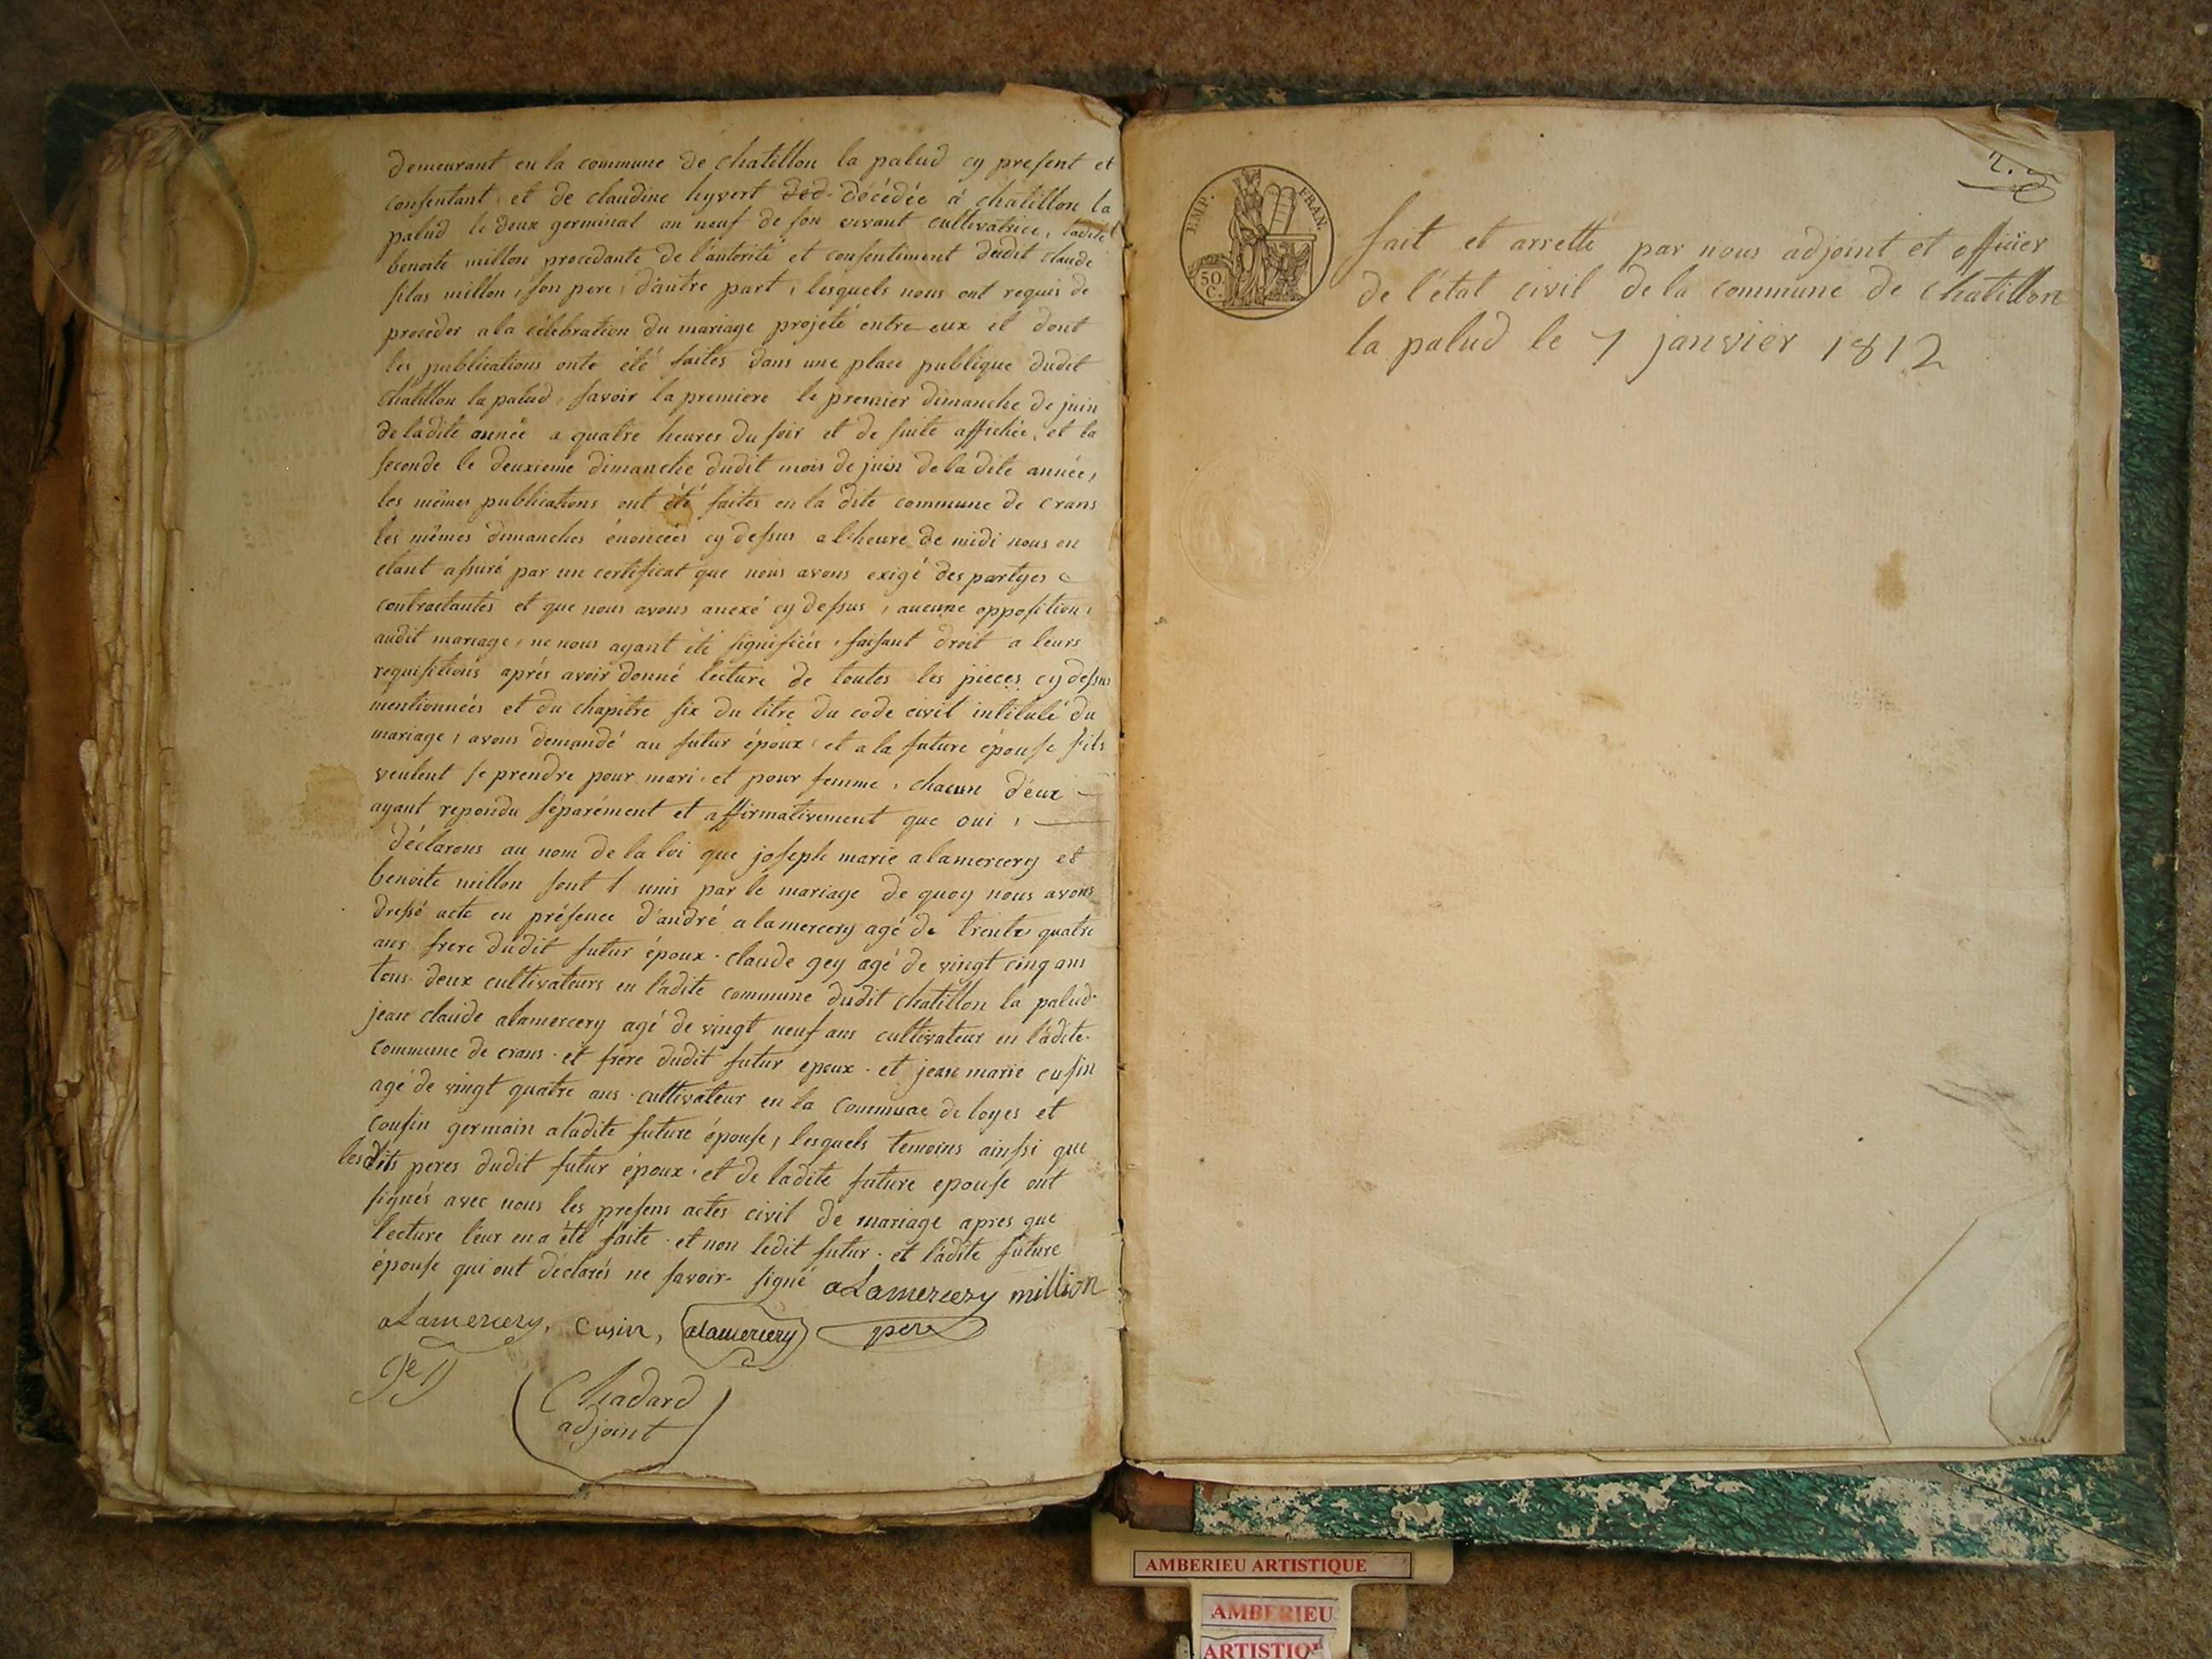 demeurant en la commune de chatillon la palud cy present et
consentant et de claudine hyvert ded. décédée à chatillon la
palud le deux germinal an neuf de son vivant cultivatrice, ladite
benoite millon procedante de l'autorité et consentement dudit claude
silas millon, son pere, d'autre part, lesquels nous ont requis de
proceder a la célebration du mariage projeté entre eux et dont
les publications onte été faites dans une place publique dudit
chatillon la palud, savoir la premiere le premier dimanche de juin
de ladite année a quatre heures du soir et de suite affichée, et la
seconde le deuxieme dimanche dudit mois de juin de la dite année,
les mêmes publications ont été faites en la dite commune de crans
les mêmes dimanches énoncées cy dessus a l'heure de midi nous en
etant assuré par un certificat que nous avons exigé des partyes
contractantes et que nous avons anexé cy dessus, aucune opposition,
audit mariage, ne nous ayant été signifiées, faisant droit a leurs
requisitions aprés avoir donné lecture de toutes les pieces cy dessus
mentionnées et du chapitre six du titre du code civil intitulé du
mariage, avons demandé au futur époux, et a la future épouse s'ils
veulent se prendre pour mari, et pour femme, chacun d'eux
ayant repondu séparément et affirmativement que oui,
déclarons au nom de la loi que joseph marie alamercery et
benoite millon sont unis par le mariage de quoy nous avons
dressé acte en présence d'andré alamercery agé de trente quatre
ans frere dudit futur époux. claude gey agé de vingt cinq ans
tous deux cultivateurs en ladite commune dudit chatillon la palud.
jean claude alamercery agé de vingt neuf ans cultivateur en ladite
commune de crans. et frere dudit futur epoux. et jean marie cusin
agé de vingt quatre ans. cultivateur en la commune de loyes et
cousin germain a ladite future épouse, lesquels temoins ainssi que
lesdits peres dudit futur époux. et de ladite future epouse ont
signés avec nous les presens actes civil de mariage apres que
lecture leur en a été faite. et non ledit futur. et ladite future
épouse qui ont déclarés ne savoir signé aLamercery million
aLamercery, Cusin, alamercery pere
Chadard
adjoint
EMP. FRAN.
50
C.
fait et arretté par nous adjoint et officier
de l'état civil de la commune de chatillon
la palud le 7 janvier 1812
AMBERIEU ARTISTIQUE
AMBERIEU